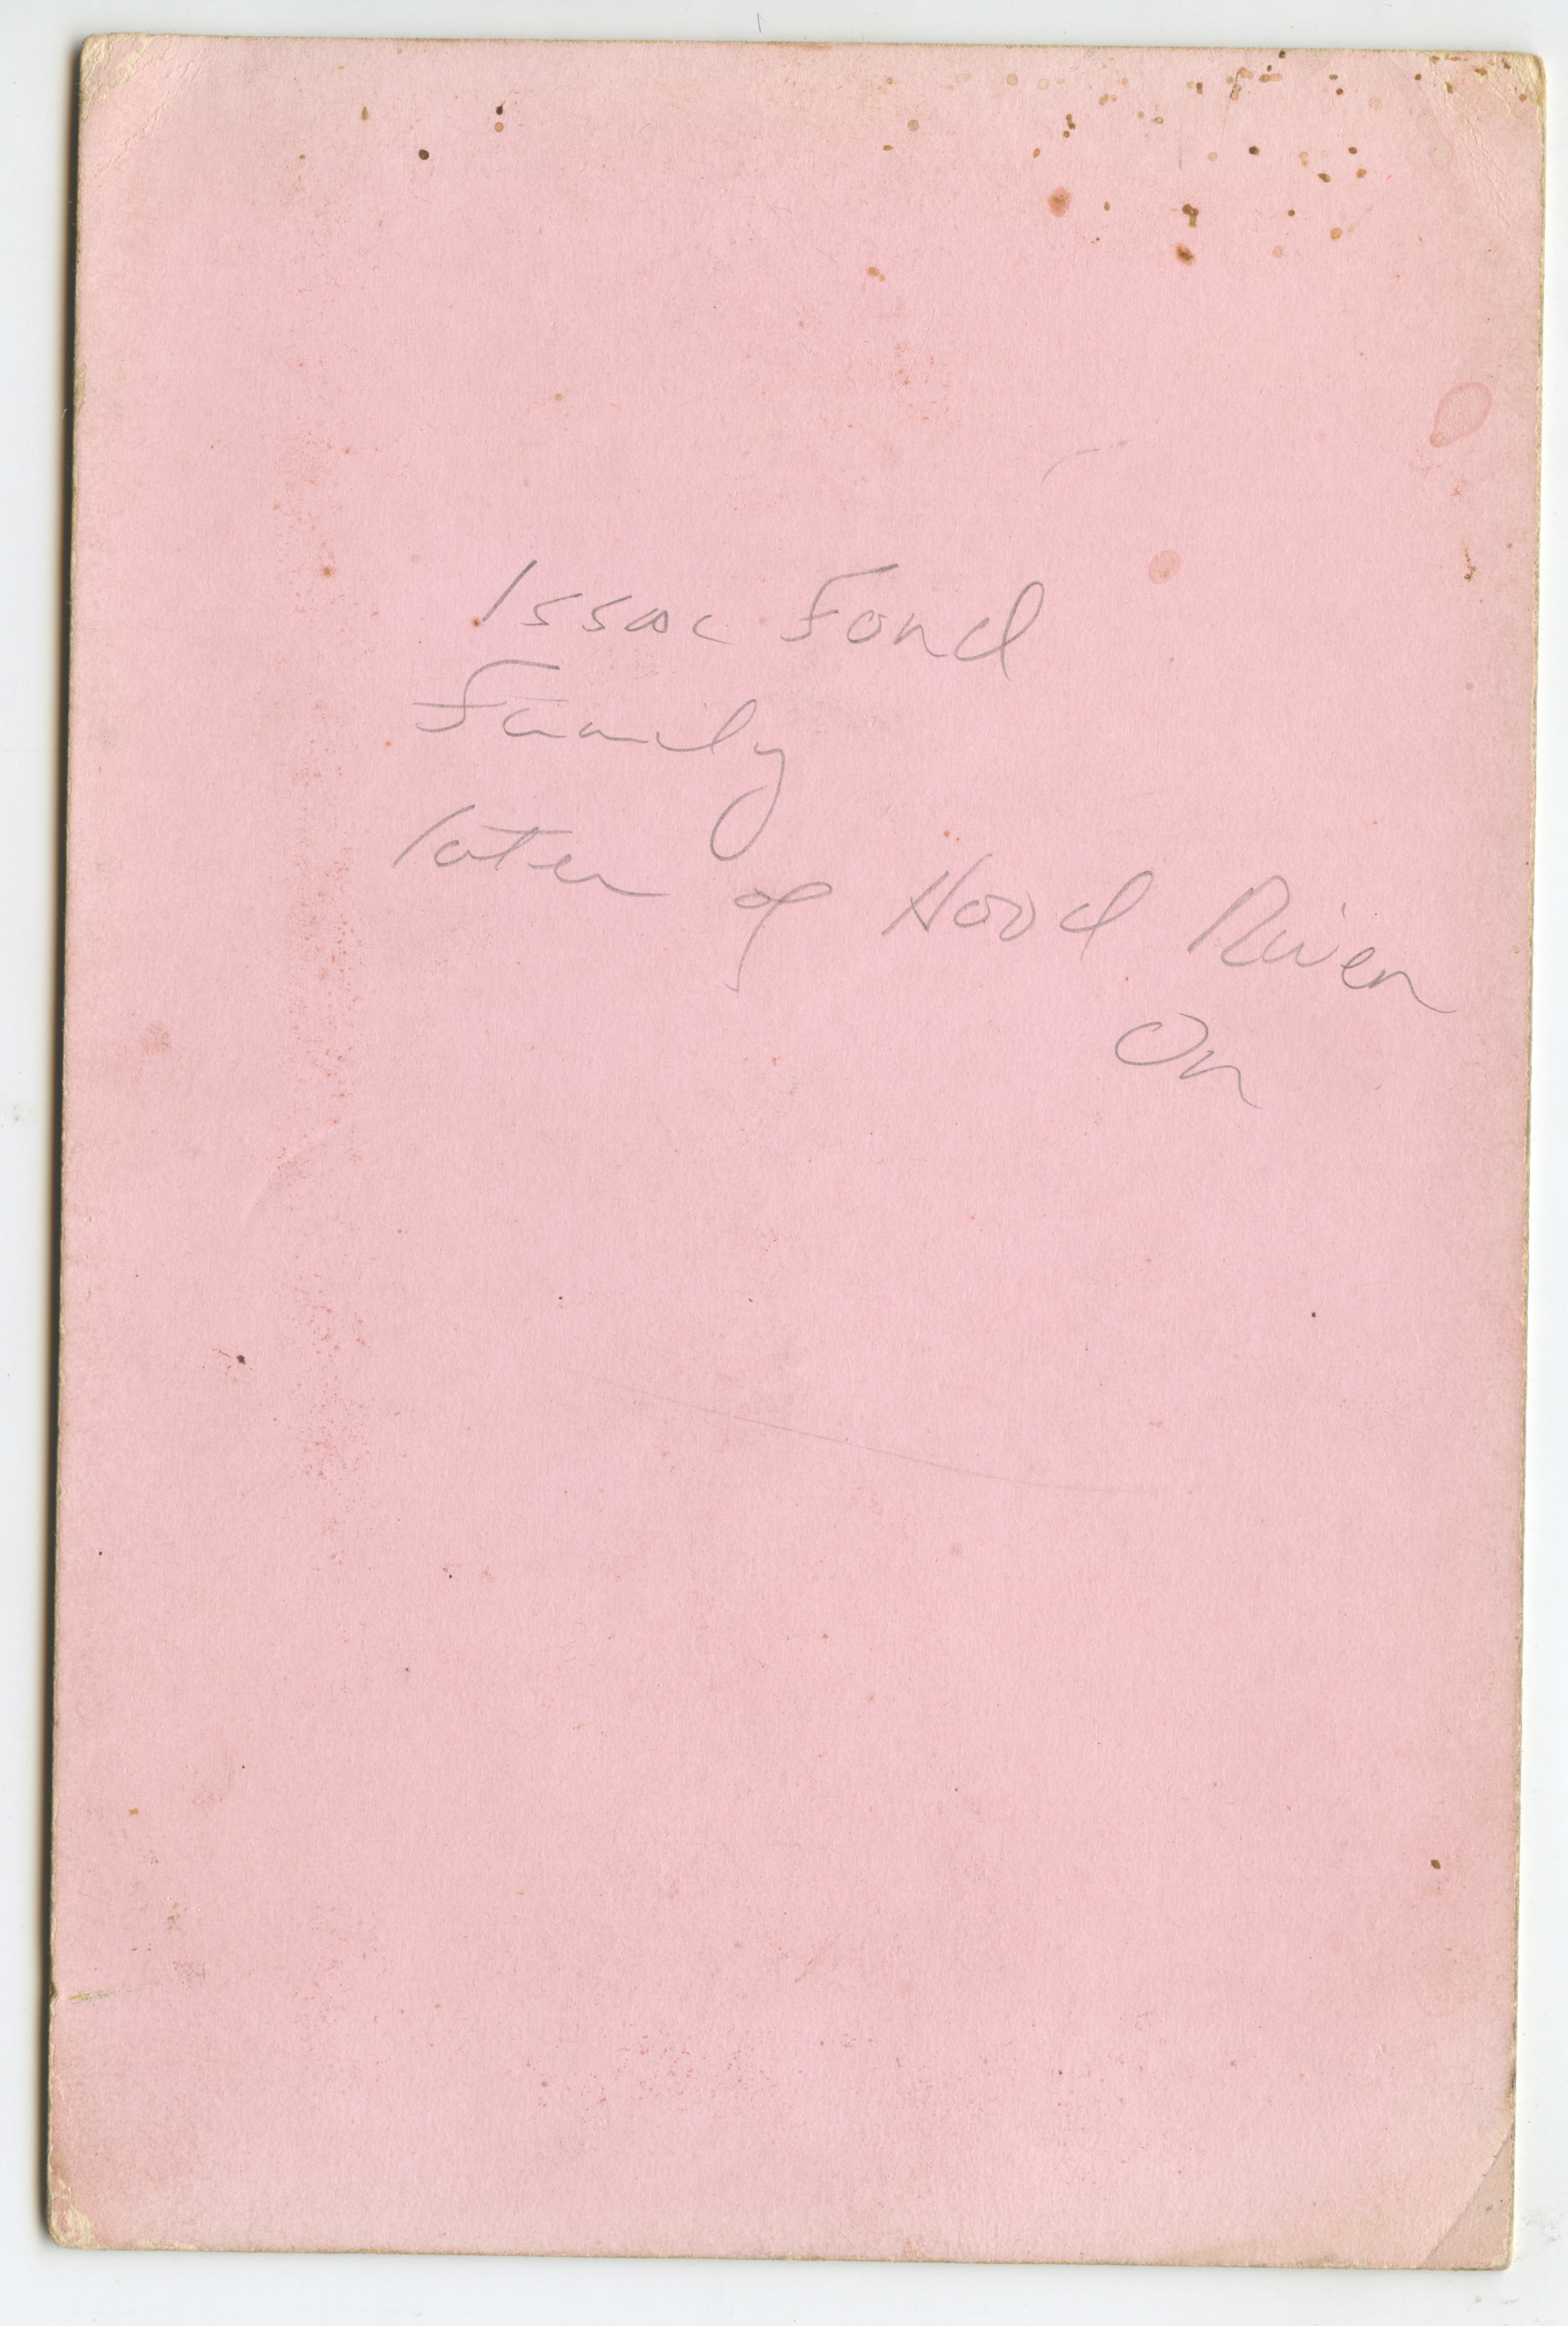 Issac Ford
Family
later of Hood River
Or